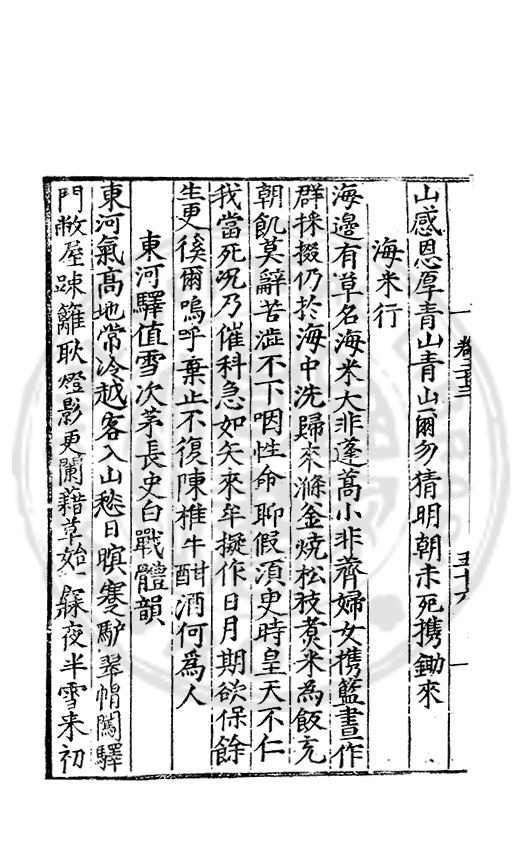 卷二十三
五十六
山感恩厚青山青山爾勿猜明朝未死携鋤來
海米行
海邊有草名海米大非蓬蒿小非薺婦女携籃晝作
群採掇仍於海中洗歸來滌釜燒松枝煮米為飯充
朝飢莫辭苦澁不下咽性命聊假須臾時皇天不仁
我當死况乃催科急如矢來牟擬作日月期欲保餘
生更徯爾嗚呼棄止不復陳椎牛酣酒何為人
東河驛值雪次茅長史白戰體韻
東河氣高地常冷越客入山愁日暝蹇驢翠帽闖驛
門敝屋踈籬耿燈影更闌藉草始一寐夜半雪来初